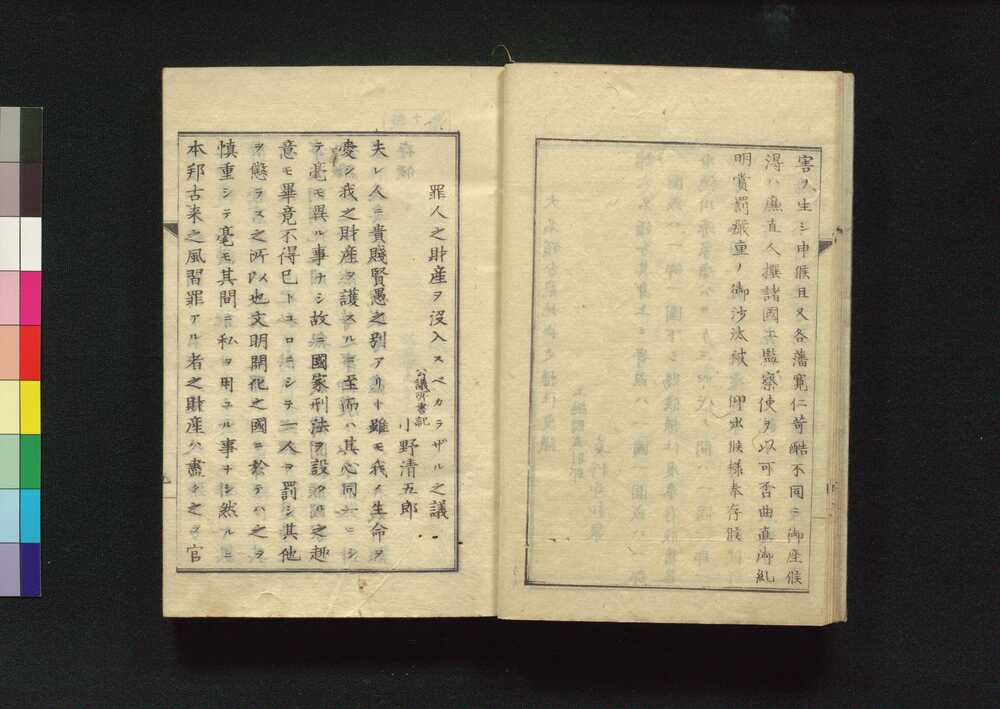 害ノ生シ申候且又各藩寛仁苛酷不同ニ御座候
得ハ廉直人撰諸國エ監察使ヲ以可否曲直御糺
明賞罰嚴重ノ御沙汰被 仰出候様奉存候
罪人之財産ヲ没入スベカラザル之議
公議所書記
小野清五郎
夫レ人ニ貴賤賢愚之別アリト雖モ我ノ生命ヲ
愛シ我之財産ヲ護スルニ至而ハ其心同一ニシ
テ毫モ異ル事ナシ故ニ國家刑法ヲ設クル之趣
意モ畢竟不得已トコロニシテ一人ヲ罰シ其他
ヲ懲ラス之所以也文明開化之國ニ於テハ之ヲ
慎重シテ毫モ其間ニ私ヲ用ユル事ナシ然ルニ
本邦古来之風習罪アル者之財産ハ盡ク之ヲ官